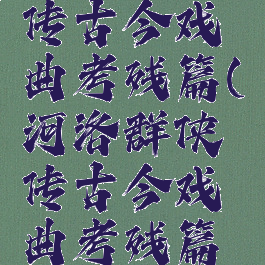 传古今戏
曲考残篇(
河洛群侠
传古今戏
曲考残篇